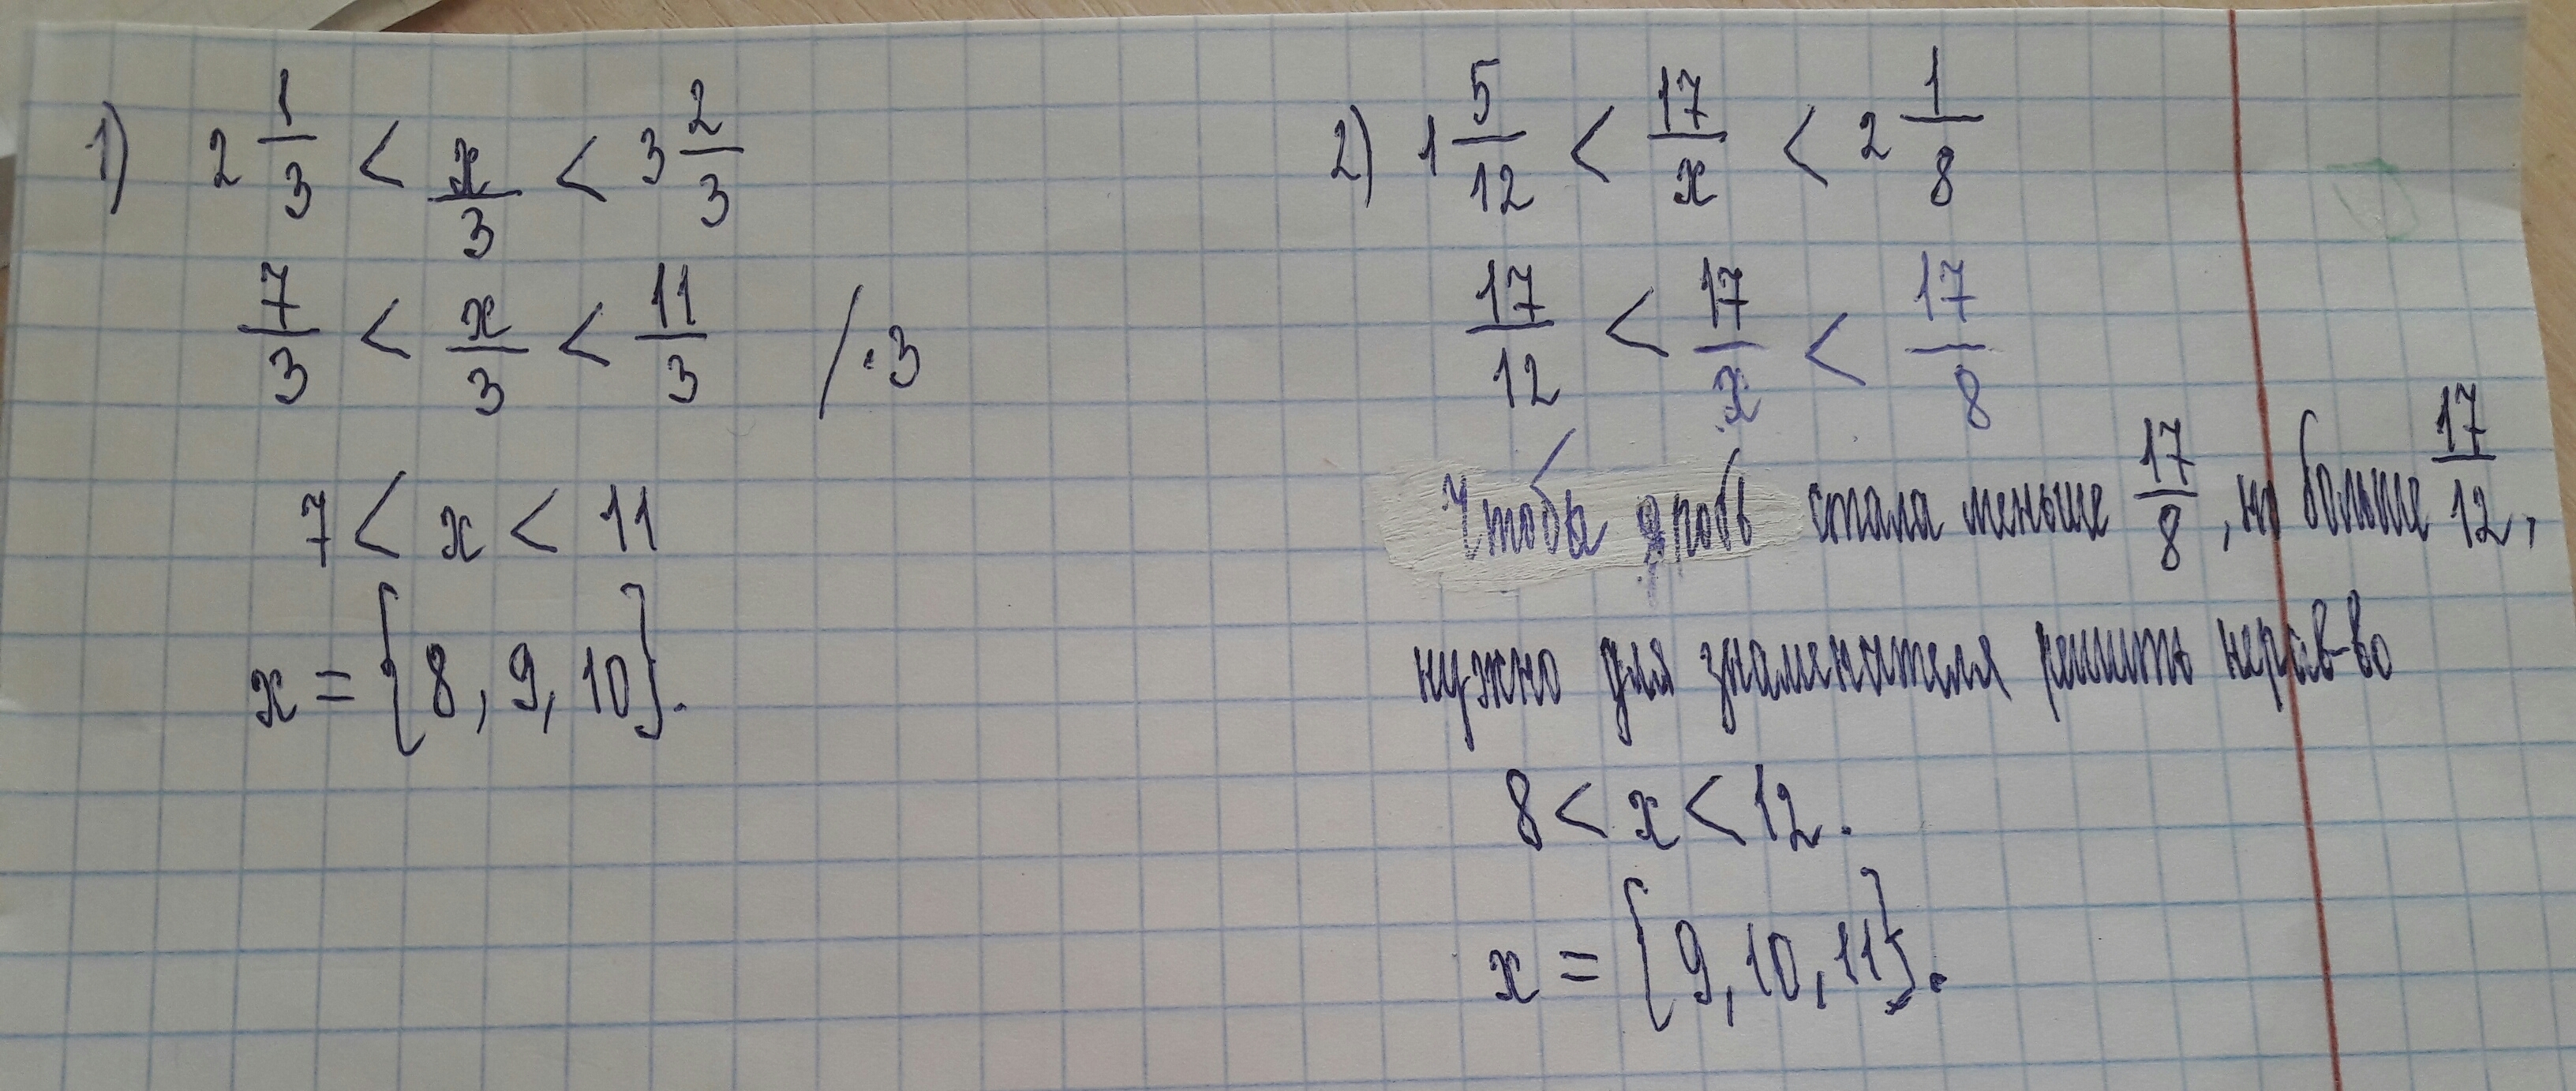 1) 2 1/3 < x/3 < 3 2/3
7/3 < x/3 < 11/3 / · 3
7 < x < 11
x = {8, 9, 10}.
2) 1 5/12 < 17/x < 2 1/8
17/12 < 17/x < 17/8
Чтобы дробь стала меньше 17/8, но больше 17/12,
нужно для знаменателя решить нерав-во
8 < x < 12.
x = {9, 10, 11}.